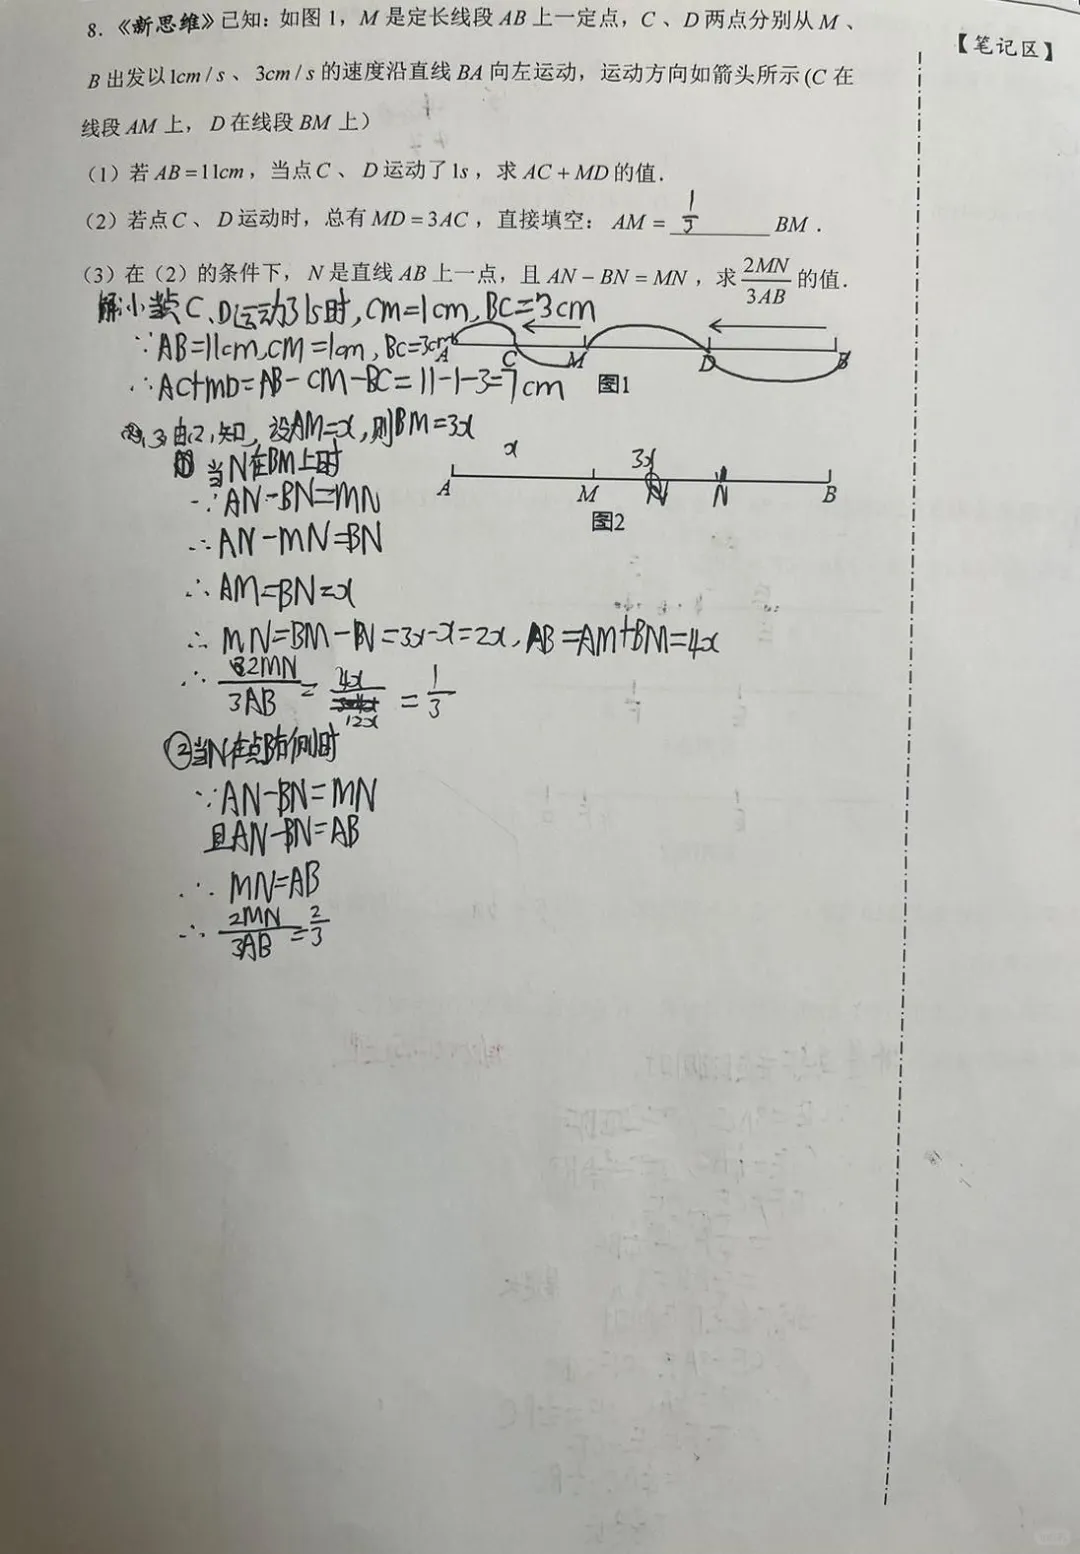 8.《新思维》已知：如图1，M是定长线段AB上一定点，C、D两点分别从M、
【笔记区】
B出发以1cm/s、3cm/s的速度沿直线BA向左运动，运动方向如箭头所示(C在
线段AM上，D在线段BM上)
（1）若AB=11cm，当点C、D运动了1s，求AC+MD的值．
（2）若点C、D运动时，总有MD=3AC，直接填空：AM=1/3BM．
（3）在（2）的条件下，N是直线AB上一点，且AN-BN=MN，求2MN/3AB的值．
解(1)当点C、D运动了1s时,CM=1cm,BC=3cm
∵AB=11cm,CM=1cm,BC=3cm
A C M D B
∴AC+MD=AB-CM-BC=11-1-3=7cm
图1
(3)由(2)知,设AM=x,则BM=3x
x 3x
①当N在BM上时
A M N N B
∵AN-BN=MN
图2
∴AN-MN=BN
∴AM=BN=x
∴MN=BM-BN=3x-x=2x,AB=AM+BM=4x
∴2MN/3AB=4x/12x=1/3
②当N在点B右侧时
∵AN-BN=MN
且AN-BN=AB
∴MN=AB
∴2MN/3AB=2/3